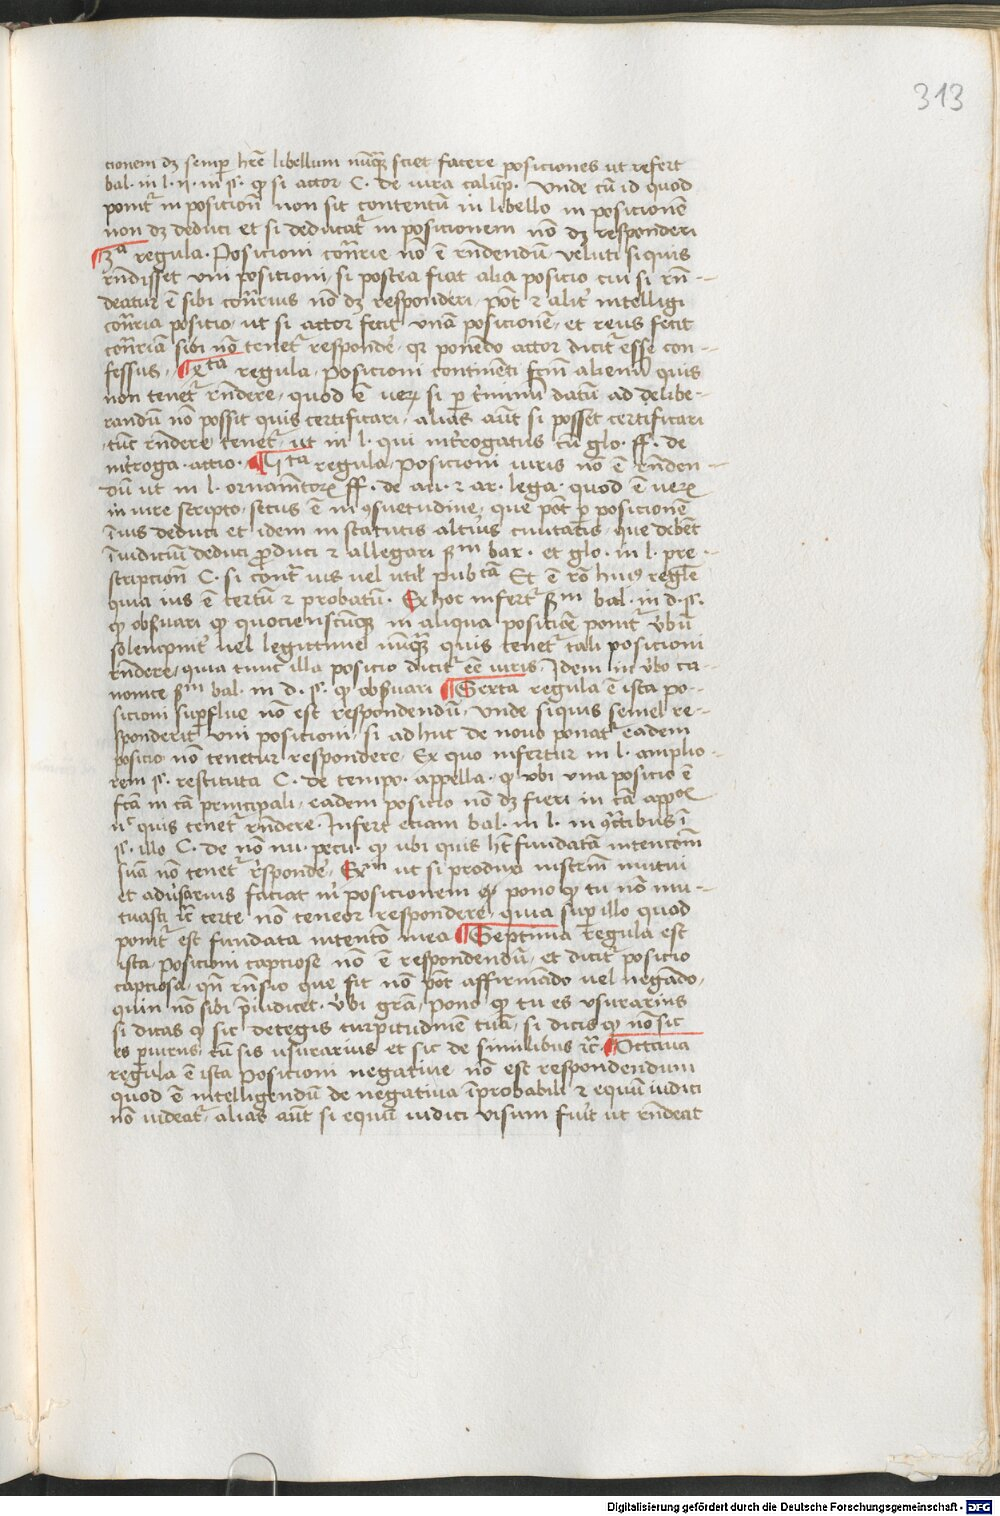 313
cionem dꝫ semꝑ hr̄e libellum nūquā sciet facere posiciones ut refert
bal. in l. ij. in §. qͥ si actor C. de iura calūp. Unde cū id quod
ponit᷑ in posicion̄ non sit contentū in libello in posicionē
non dꝫ deduci et si deducat᷑ in posicionem nō dꝫ responderi
3ᵃ regula. Posicioni cōtrrie nō ē rn̄dendū, veluti siquis
rn̄disset vni posicioni, si postea fiat alia posicio cui si rn̄-
deatur ē sibi cōtrrius nō dꝫ responderi, pōt ⁊ alit᷑ intelligi
cōtrria posicio, ut si actor fecit vnā posicionē, et reus fecit
cōtrriā sibi nō tenet᷑ respondē, qꝛ ponēdo actor dicit᷑ esse con-
fessus, xᵗᵃ regula, Posicioni continēti fc̄m alienū quis
non tenet᷑ rn̄dere, quod ē veꝝ si ꝑ t᷑minū datū ad delibe-
randū nō possit quis certificari, alias aūt si posset certificari
tūc rn̄dere tenet᷑, ut in l. qui int᷑rogatus cū glo. ff. de
int᷑roga. actio. Vᵗᵃ regula, Posicioni iuris nō ē rn̄den-
dū ut in l. ornam̄toꝝ ff. de au. ⁊ ar. lega. quod ē veꝝ
in iure scripto, secus ē in ꝯsuetudine, que pōt ꝑ posicionē
īius deduci et idem in statutis alt᷑ius ciuitatis, que debēt
ī iudiciū deduci ꝓduci ⁊ allegari sᵐ bar. et glo. in l. pre-
scripcion̄ C. si contr᷑ ius uel util. pubᶜᵃ Et ē rō huiꝰ regl̄e
quia ius ē certū ⁊ probatū. Ex hoc infert᷑ sᵐ bal. in d. §.
qͥ obs᷑uari qͥ quociensc̄unqꝫ in aliqua posicōe ponit᷑ v᷑bū
solempnit᷑ uel legittime nūquā quis tenet᷑ tali posicioni
rn̄dere, quia tunc illa posicio dicit᷑ eē iuris. Idem in v᷑bo ca-
nonice sᵐ bal. in d. §. qͥ obs᷑uari Sexta regula ē ista po-
sicioni suꝑflue nō est respondendū, Vnde siquis semel re-
sponderit vni posicioni, si adhuc de nouo ponat᷑ eadem
posicio nō tenetur respondere. Ex quo infertur in l. amplio-
rem §. restituta C. de tempo. appella. qͥ vbi vna posicio ē
fc̄a in cā principali, eadem posicio nō dꝫ fieri in cā appōis
nᶜ quis tenet᷑ rn̄dere. Infert eciam bal. in l. in ꝯtractibus ī
§. illo C. de nō nu. pecu. qͥ ubi quis hꝫ fundatā intencōm
suā nō tenet᷑ r᷑spondē, Exᵐ ut si produxi instrm̄ mutui
et adu᷑sarius faciat m᷑ posicionem pono qͥ tu nō mu-
tuasti ⁊c certe nō teneor respondere, quia suꝑ illo quod
ponit᷑ est fundata intentō mea Septima regula est
ista, Posicioni captiose nō ē respondendū, et dicit᷑ posicio
captiosa, qn̄ rn̄sio que fit nō pōt affirmādo uel negādo,
quin nō sibi p᷑iudicet. Vbi grā, Pono qͥ tu es vsurarius
si dicas qͥ sic detegis turpitudinē tuā, si dicis qͥ nō sic
es ꝑiurus, cū sis usurarius et sic de similibus ⁊c. Octaua
regula ē ista Posicioni negatiue nō est respondendum
quod ē intelligendū de negatiua īprobabili ⁊ equū iudici
nō videat᷑, alias aūt si equū iudici visum fuit ut rn̄deat
Digitalisierung gefördert durch die Deutsche Forschungsgemeinschaft · DFG